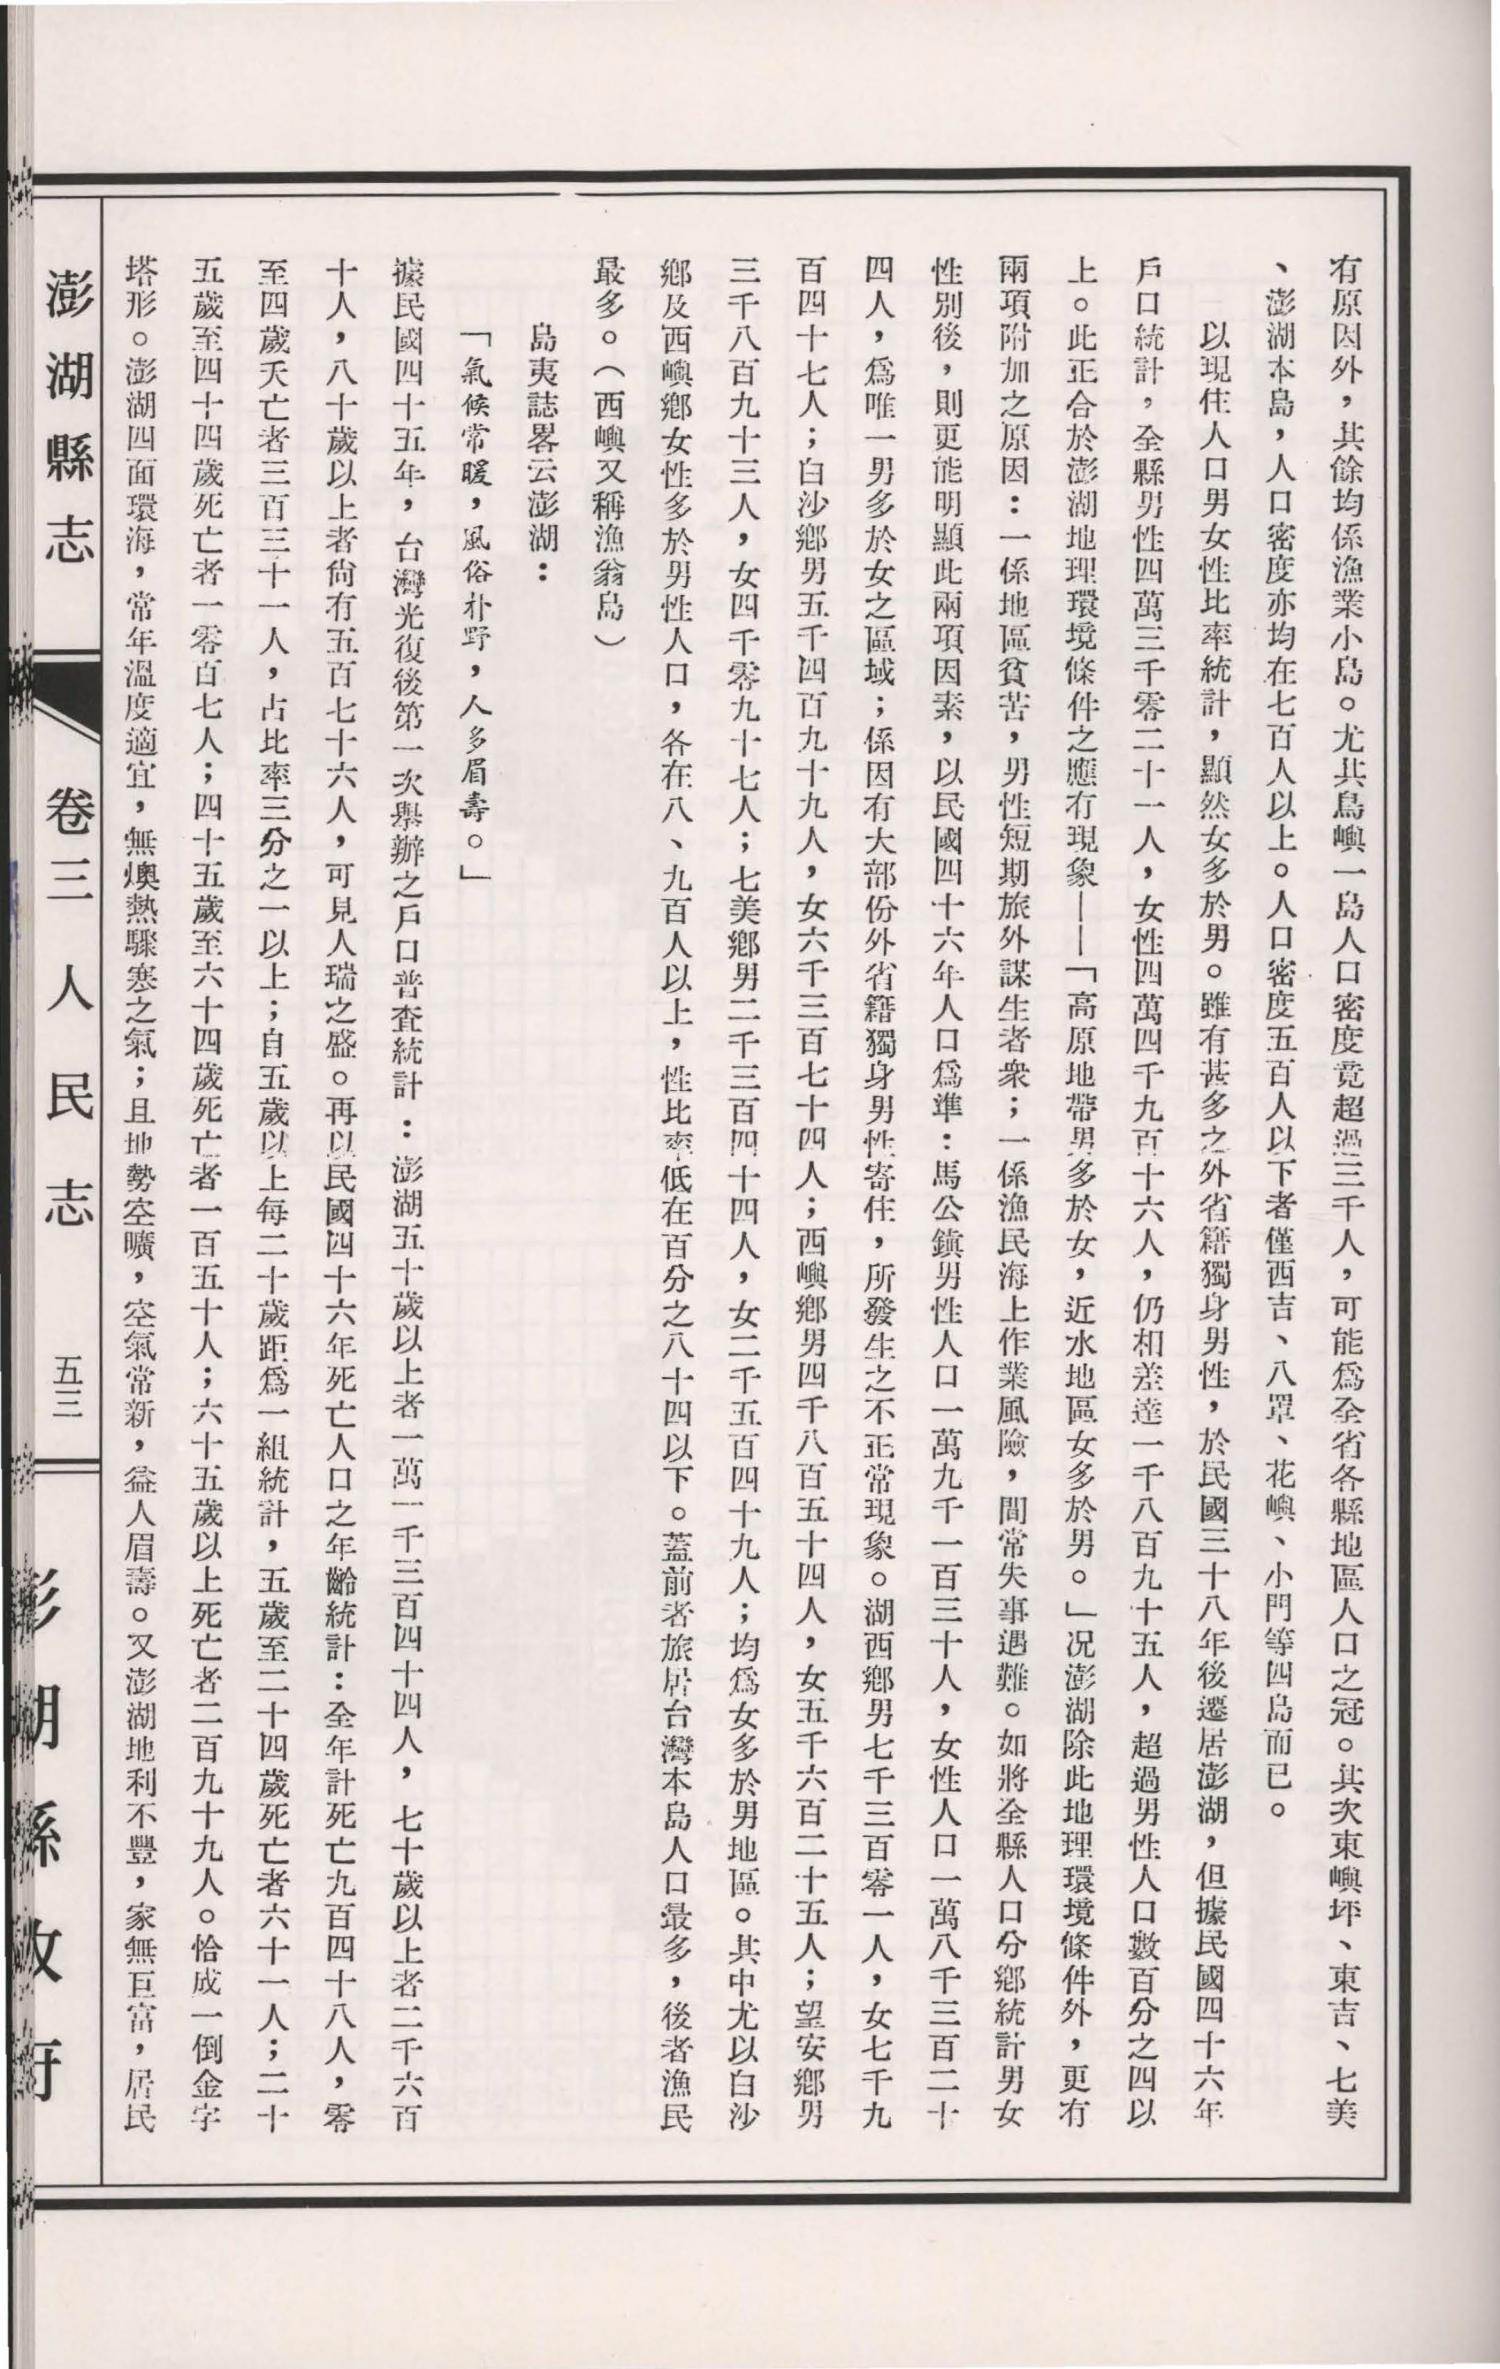 有原因外，其餘均係漁業小島。尤其鳥嶼一島人口密度竟超過三千人，可能為全省各縣地區人口之冠。其次東嶼坪、東吉、七美
、澎湖本島，人口密度亦均在七百人以上。人口密度五百人以下者僅西吉、八罩、花嶼、小門等四島而已。
以現住人口男女性比率統計，顯然女多於男。雖有甚多之外省籍獨身男性，於民國三十八年後遷居澎湖，但據民國四十六年
戶口統計，全縣男性四萬三千零二十一人，女性四萬四千九百十六人，仍相差達一千八百九十五人，超過男性人口數百分之四以
上。此正合於澎湖地理環境條件之應有現象——「高原地帶男多於女，近水地區女多於男。」况澎湖除此地理環境條件外，更有
兩項附加之原因：一係地區貧苦，男性短期旅外謀生者衆；一係漁民海上作業風險，間常失事遇難。如將全縣人口分鄉統計男女
性別後，則更能明顯此兩項因素，以民國四十六年人口爲準：馬公鎮男性人口一萬九千一百三十人，女性人口一萬八千三百二十
四人，爲唯一男多於女之區域；係因有大部份外省籍獨身男性寄住，所發生之不正常現象。湖西鄉男七千三百零一人，女七千九
百四十七人；白沙鄉男五千四百九十九人，女六千三百七十四人；西嶼鄉男四千八百五十四人，女五千六百二十五人；望安鄉男
三千八百九十三人，女四千零九十七人；七美鄉男二千三百四十四人，女二千五百四十九人；均爲女多於男地區。其中尤以白沙
鄉及西嶼鄉女性多於男性人口，各在八、九百人以上，性比率低在百分之八十四以下。蓋前者旅居台灣本島人口最多，後者漁民
最多。（西嶼又稱漁翁島）
島夷誌畧云澎湖：
「氣候常暖，風俗朴野，人多眉壽。」
據民國四十五年，台灣光復後第一次舉辦之戶口普查統計：澎湖五十歲以上者一萬一千三百四十四人，七十歲以上者二千六百
十人，八十歲以上者尙有五百七十六人，可見人瑞之盛。再以民國四十六年死亡人口之年齡統計：全年計死亡九百四十八人，零
至四歲夭亡者三百三十一人，占比率三分之一以上；自五歲以上每二十歲距爲一組統計，五歲至二十四歲死亡者六十一人；二十
五歲至四十四歲死亡者一零百七人；四十五歲至六十四歲死亡者一百五十人；六十五歲以上死亡者二百九十九人。恰成一倒金字
塔形。澎湖四面環海，常年溫度適宜，無燠熱驟寒之氣；且地勢空曠，空氣常新，益人眉壽。又澎湖地利不豐，家無巨富，居民
澎湖縣志
卷三人民志
五三
澎湖縣政府